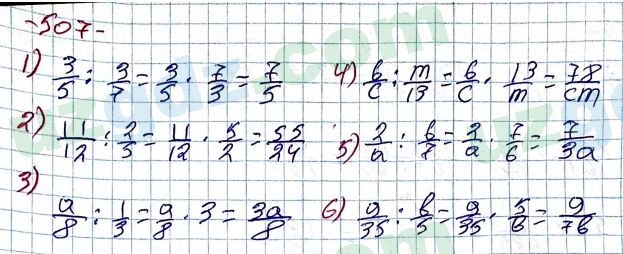 -507-
1) 3/5 : 3/7 = 3/5 · 7/3 = 7/5
4) 6/c : m/13 = 6/c · 13/m = 78/cm
2) 11/12 : 2/5 = 11/12 · 5/2 = 55/24
5) 2/a : 6/7 = 2/a · 7/6 = 7/3a
3)
a/8 : 1/3 = a/8 · 3 = 3a/8
6) 9/35 : b/5 = 9/35 · 5/b = 9/7b